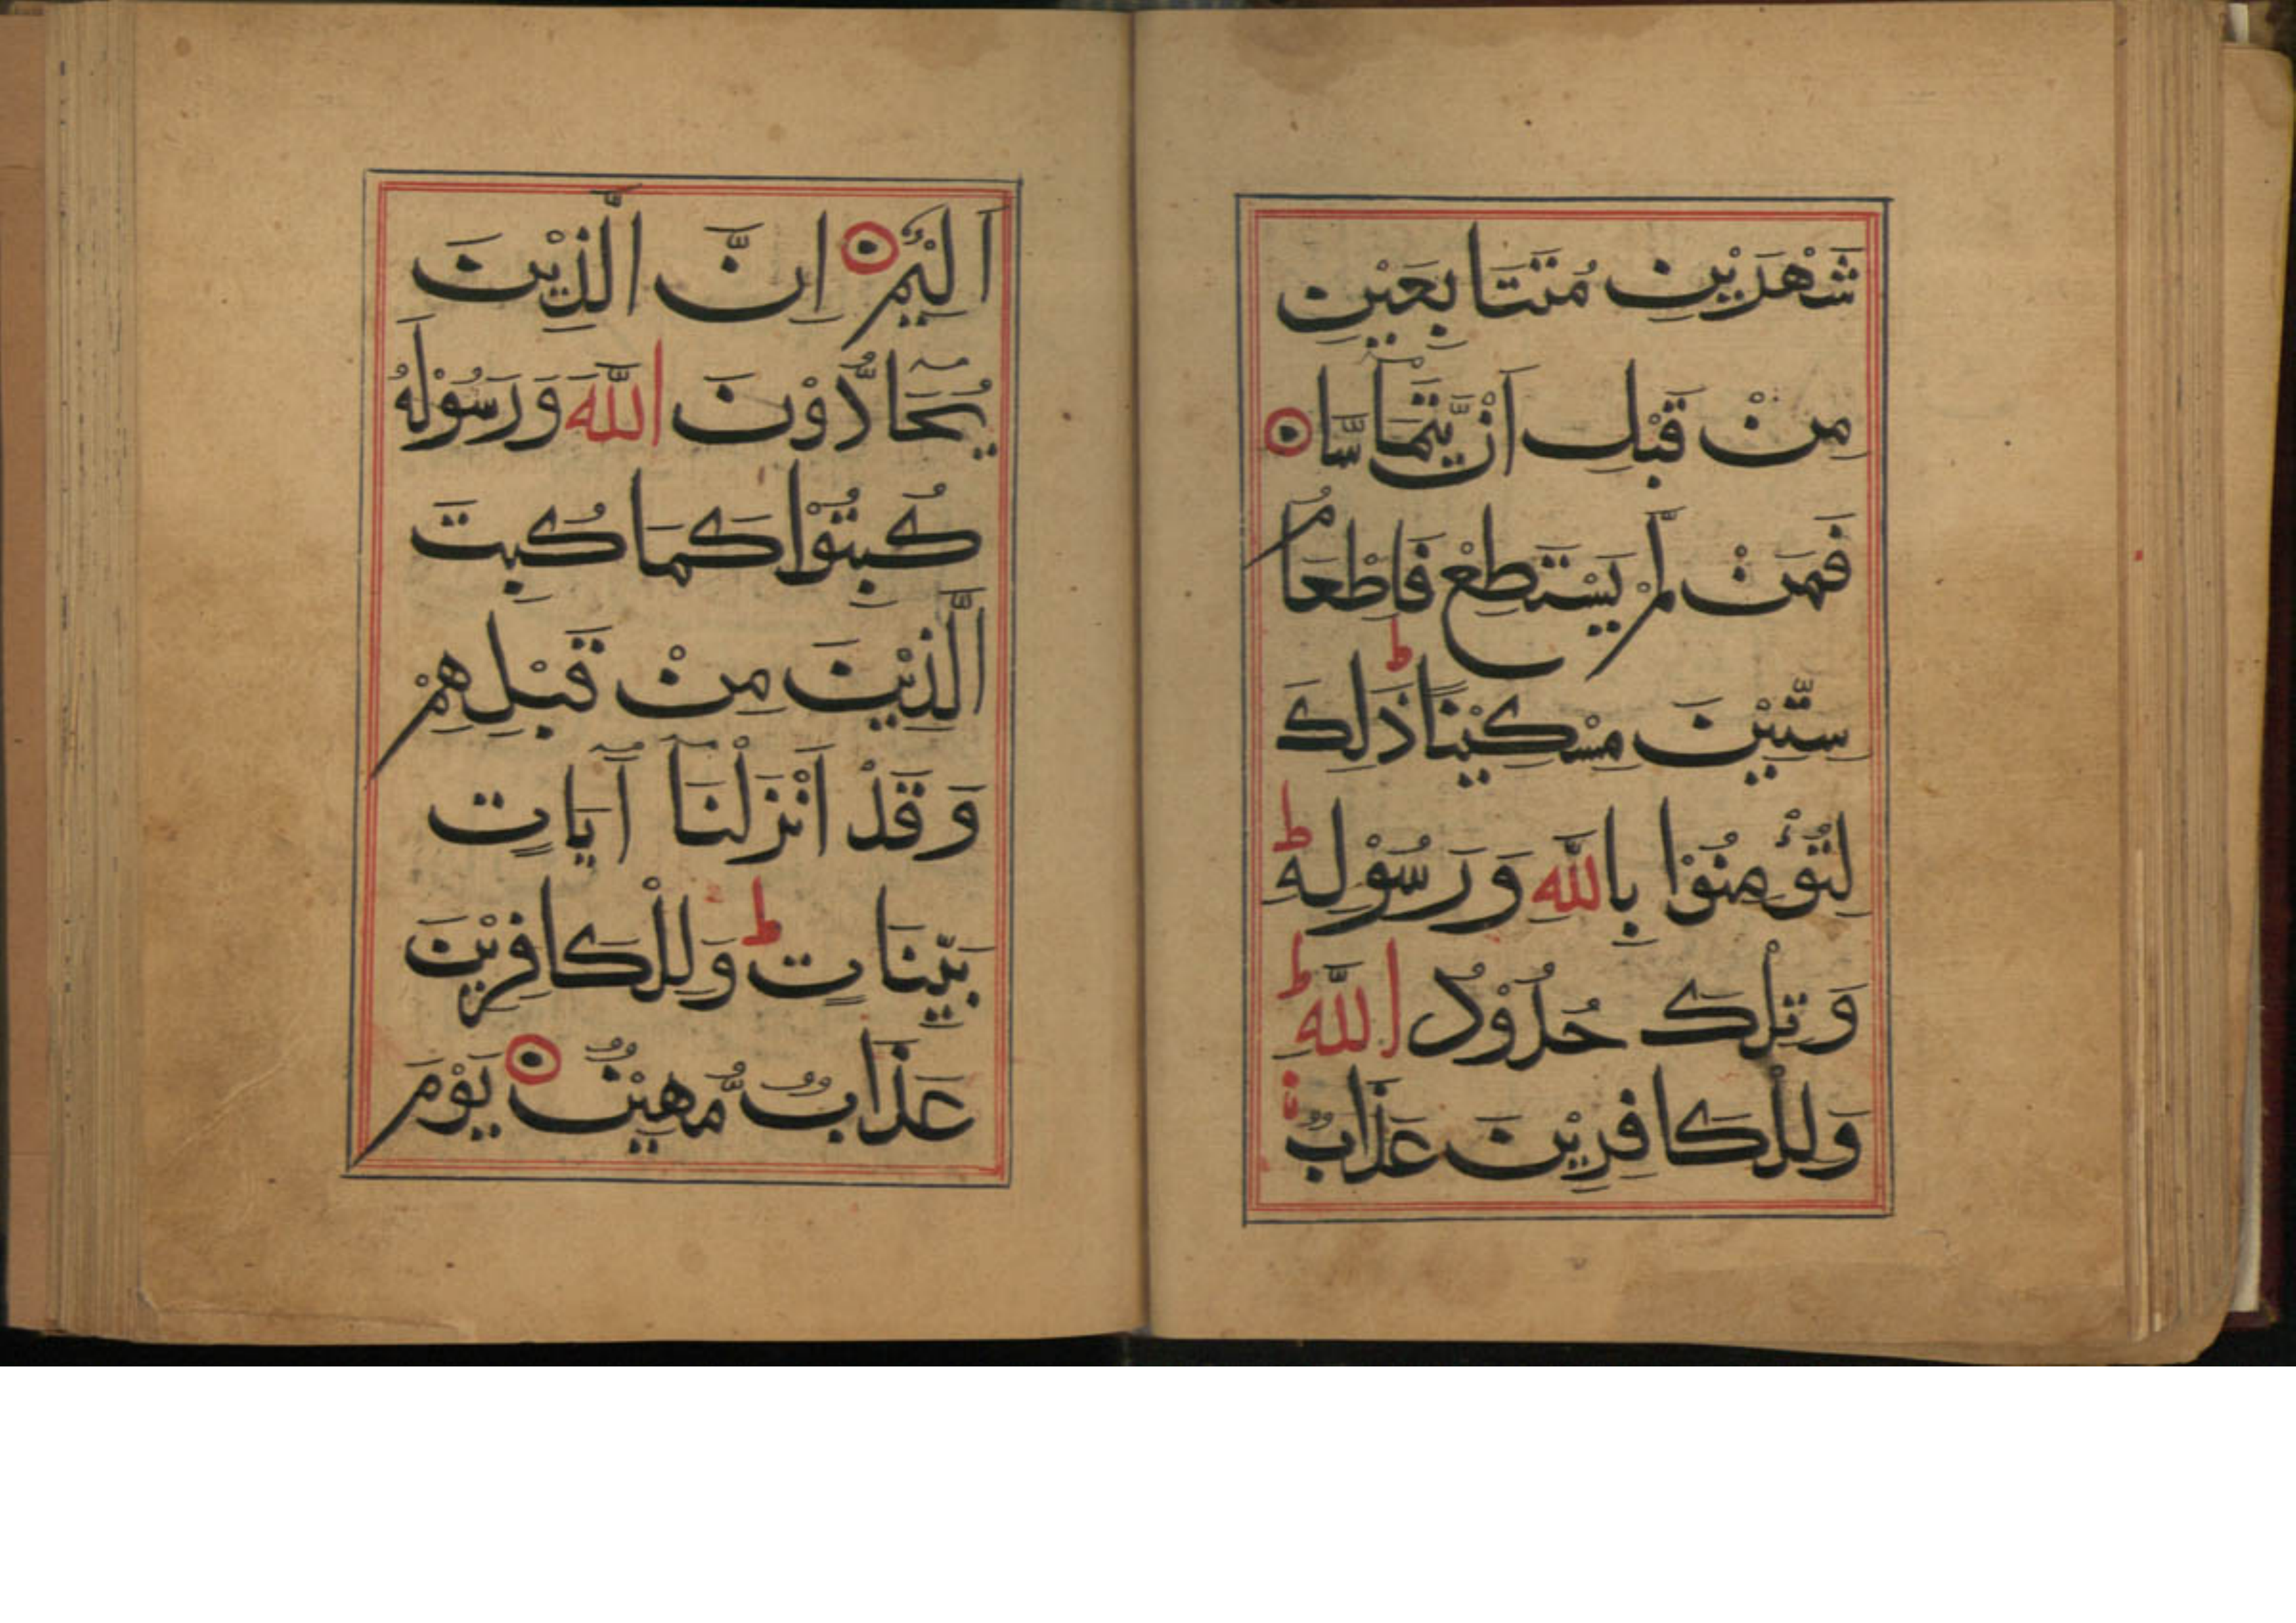 شَهْرَيْنِ مُتَتَابِعَيْنِ
مِنْ قَبْلِ اَنْ يَّتَمَآسَّا
فَمَنْ لَّمْ يَسْتَطِعْ فَاِطْعَامُ
سِتِّيْنَ مِسْكِيْنًا ط ذٰلِكَ
لِتُؤْمِنُوْا بِاللّٰهِ وَرَسُوْلِهٖ ط
وَتِلْكَ حُدُوْدُ اللّٰهِ ط
وَلِلْكَافِرِيْنَ عَذَابٌ
اَلِيْمٌ اِنَّ الَّذِيْنَ
يُحَآدُّوْنَ اللّٰهَ وَرَسُوْلَهٗ
كُبِتُوْا كَمَا كُبِتَ
الَّذِيْنَ مِنْ قَبْلِهِمْ
وَقَدْ اَنْزَلْنَآ آيَاتٍ
بَيِّنَاتٍ ط وَلِلْكَافِرِيْنَ
عَذَابٌ مُّهِيْنٌ يَوْمَ